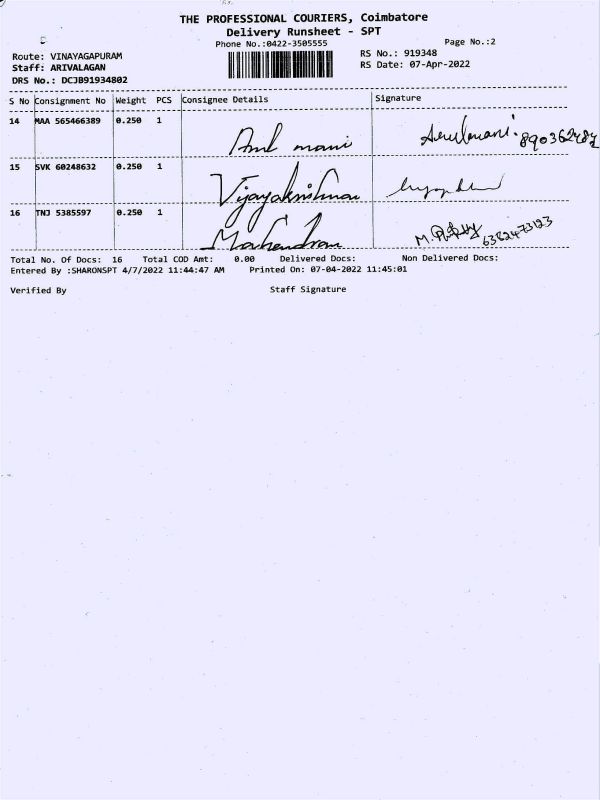 THE PROFESSIONAL COURIERS, Coimbatore
Delivery Runsheet - SPT
Phone No.:0422-3505555 Page No.:2
Route: VINAYAGAPURAM RS No.: 919348
Staff: ARIVALAGAN RS Date: 07-Apr-2022
DRS No.: DCJB91934802
S No Consignment No Weight PCS Consignee Details Signature
14 MAA 565466389 0.250 1 Arul mani Arulmani.
15 SVK 60248632 0.250 1 Vijayakrishnan
16 TNJ 5385597 0.250 1 Mahendran M. 6382473123
Total No. Of Docs: 16 Total COD Amt: 0.00 Delivered Docs: Non Delivered Docs:
Entered By :SHARONSPT 4/7/2022 11:44:47 AM Printed On: 07-04-2022 11:45:01
Verified By Staff Signature